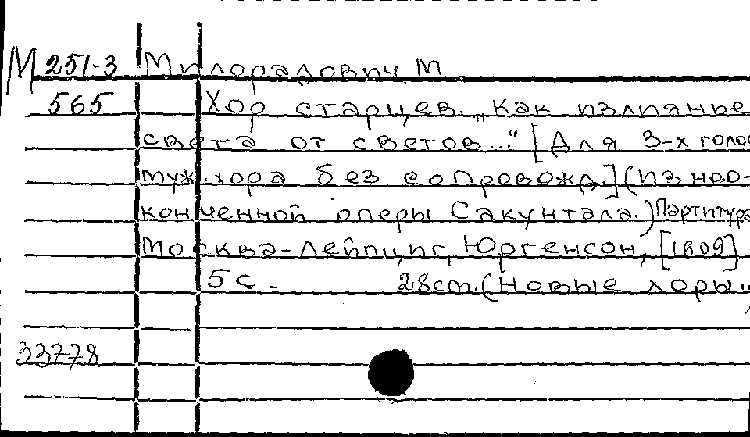 М 251-3 Милорадович М
565 Хор старцев. „Как излияние
света от светов..." [Для 3-х голос
муж. хора без сопровожд.] (Из неo-
конченной оперы Сакунтала.) Партитура
Москва-Лейпциг, Юргенсон, [1909]
5 с. 28 cm. (Новые хоры
33778